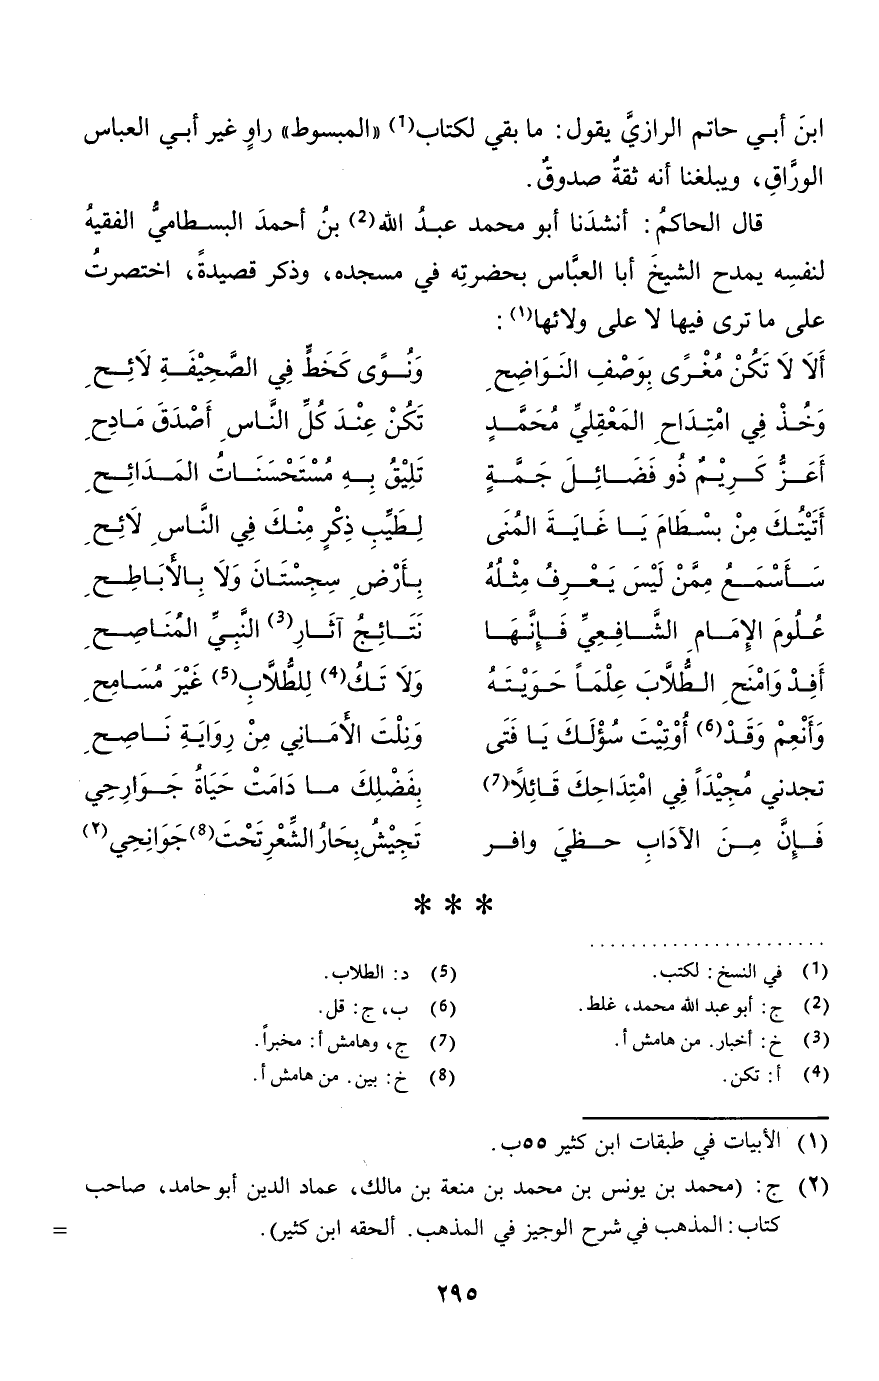 ابنَ أبي حاتم الرازيَّ يقول: ما بقي لكتاب(1) «المبسوط» راوٍ غير أبي العباس
الورَّاقِ، ويبلغنا أنه ثقةٌ صدوقٌ.
قال الحاكمُ: أنشدَنا أبو محمد عبدُ الله(2) بنُ أحمدَ البسطاميُّ الفقيهُ
لنفسِه يمدح الشيخَ أبا العبَّاس بحضرتِه في مسجده، وذكر قصيدةً، اختصرتُ
على ما ترى فيها لا على ولائها(١):
أَلَا لَا تَكُنْ مُغْرًى بِوَصْفِ النَوَاضِحِ وَنُوًى كَخَطٍّ فِي الصَّحِيْفَةِ لَائِحِ
وَخُذْ فِي امْتِدَاحِ المَعْقِليِّ مُحَمَّدٍ تَكُنْ عِنْدَ كُلِّ النَّاسِ أَصْدَقَ مَادِحِ
أَعَزُّ كَرِيْمٌ ذُو فَضَائِلَ جَمَّةٍ تَلِيْقُ بِهِ مُسْتَحْسَنَاتُ المَدَائِحِ
أَتَيْتُكَ مِنْ بِسْطَامَ يَا غَايَةَ المُنَى لِطَيِّبِ ذِكْرٍ مِنْكَ فِي النَّاسِ لَائِحِ
سَأَسْمَعُ مِمَّنْ لَيْسَ يَعْرِفُ مِثْلُهُ بِأَرْضِ سِجِسْتَانَ وَلَا بِالأَبَاطِحِ
عُلُومَ الإِمَامِ الشَّافِعِيِّ فَإِنَّهَا نَتَائِجُ آثَارِ(3) النَّبِيِّ المُنَاصِحِ
أَفِدْ وَامْنَحِ الطُّلَّابَ عِلْمَاً حَوَيْتَهُ وَلَا تَكُ(4) لِلطُّلَّابِ(5) غَيْرَ مُسَامِحِ
وَأَنْعِمْ وَقَدْ(6) أُوْتِيْتَ سُؤْلَكَ يَا فَتَى وَنِلْتَ الأَمَانِي مِنْ رِوَايَةِ نَاصِحِ
تجدني مُجِيْدَاً فِي امْتِدَاحِكَ قَائِلًا(7) بِفَضْلِكَ مَا دَامَتْ حَيَاةُ جَوَارِحِي
فَإِنَّ مِنَ الآدَابِ حَظِّيَ وافر تَجِيْشُ بِحَارُ الشِّعْرِ تَحْتَ(8) جَوَانِحِي(٢)
* * *
(1) في النسخ: لكتب.
(2) ج: أبو عبد الله محمد، غلط.
(3) خ: أخبار. من هامش أ.
(4) أ: تكن.
(5) د: الطلاب.
(6) ب، ج: قل.
(7) ج، وهامش أ: مخبراً.
(8) خ: بين. من هامش أ.
(١) الأبيات في طبقات ابن كثير ٥٥ب.
(٢) ج: (محمد بن يونس بن محمد بن منعة بن مالك، عماد الدين أبو حامد، صاحب
كتاب: المذهب في شرح الوجيز في المذهب. ألحقه ابن كثير). =
٢٩٥